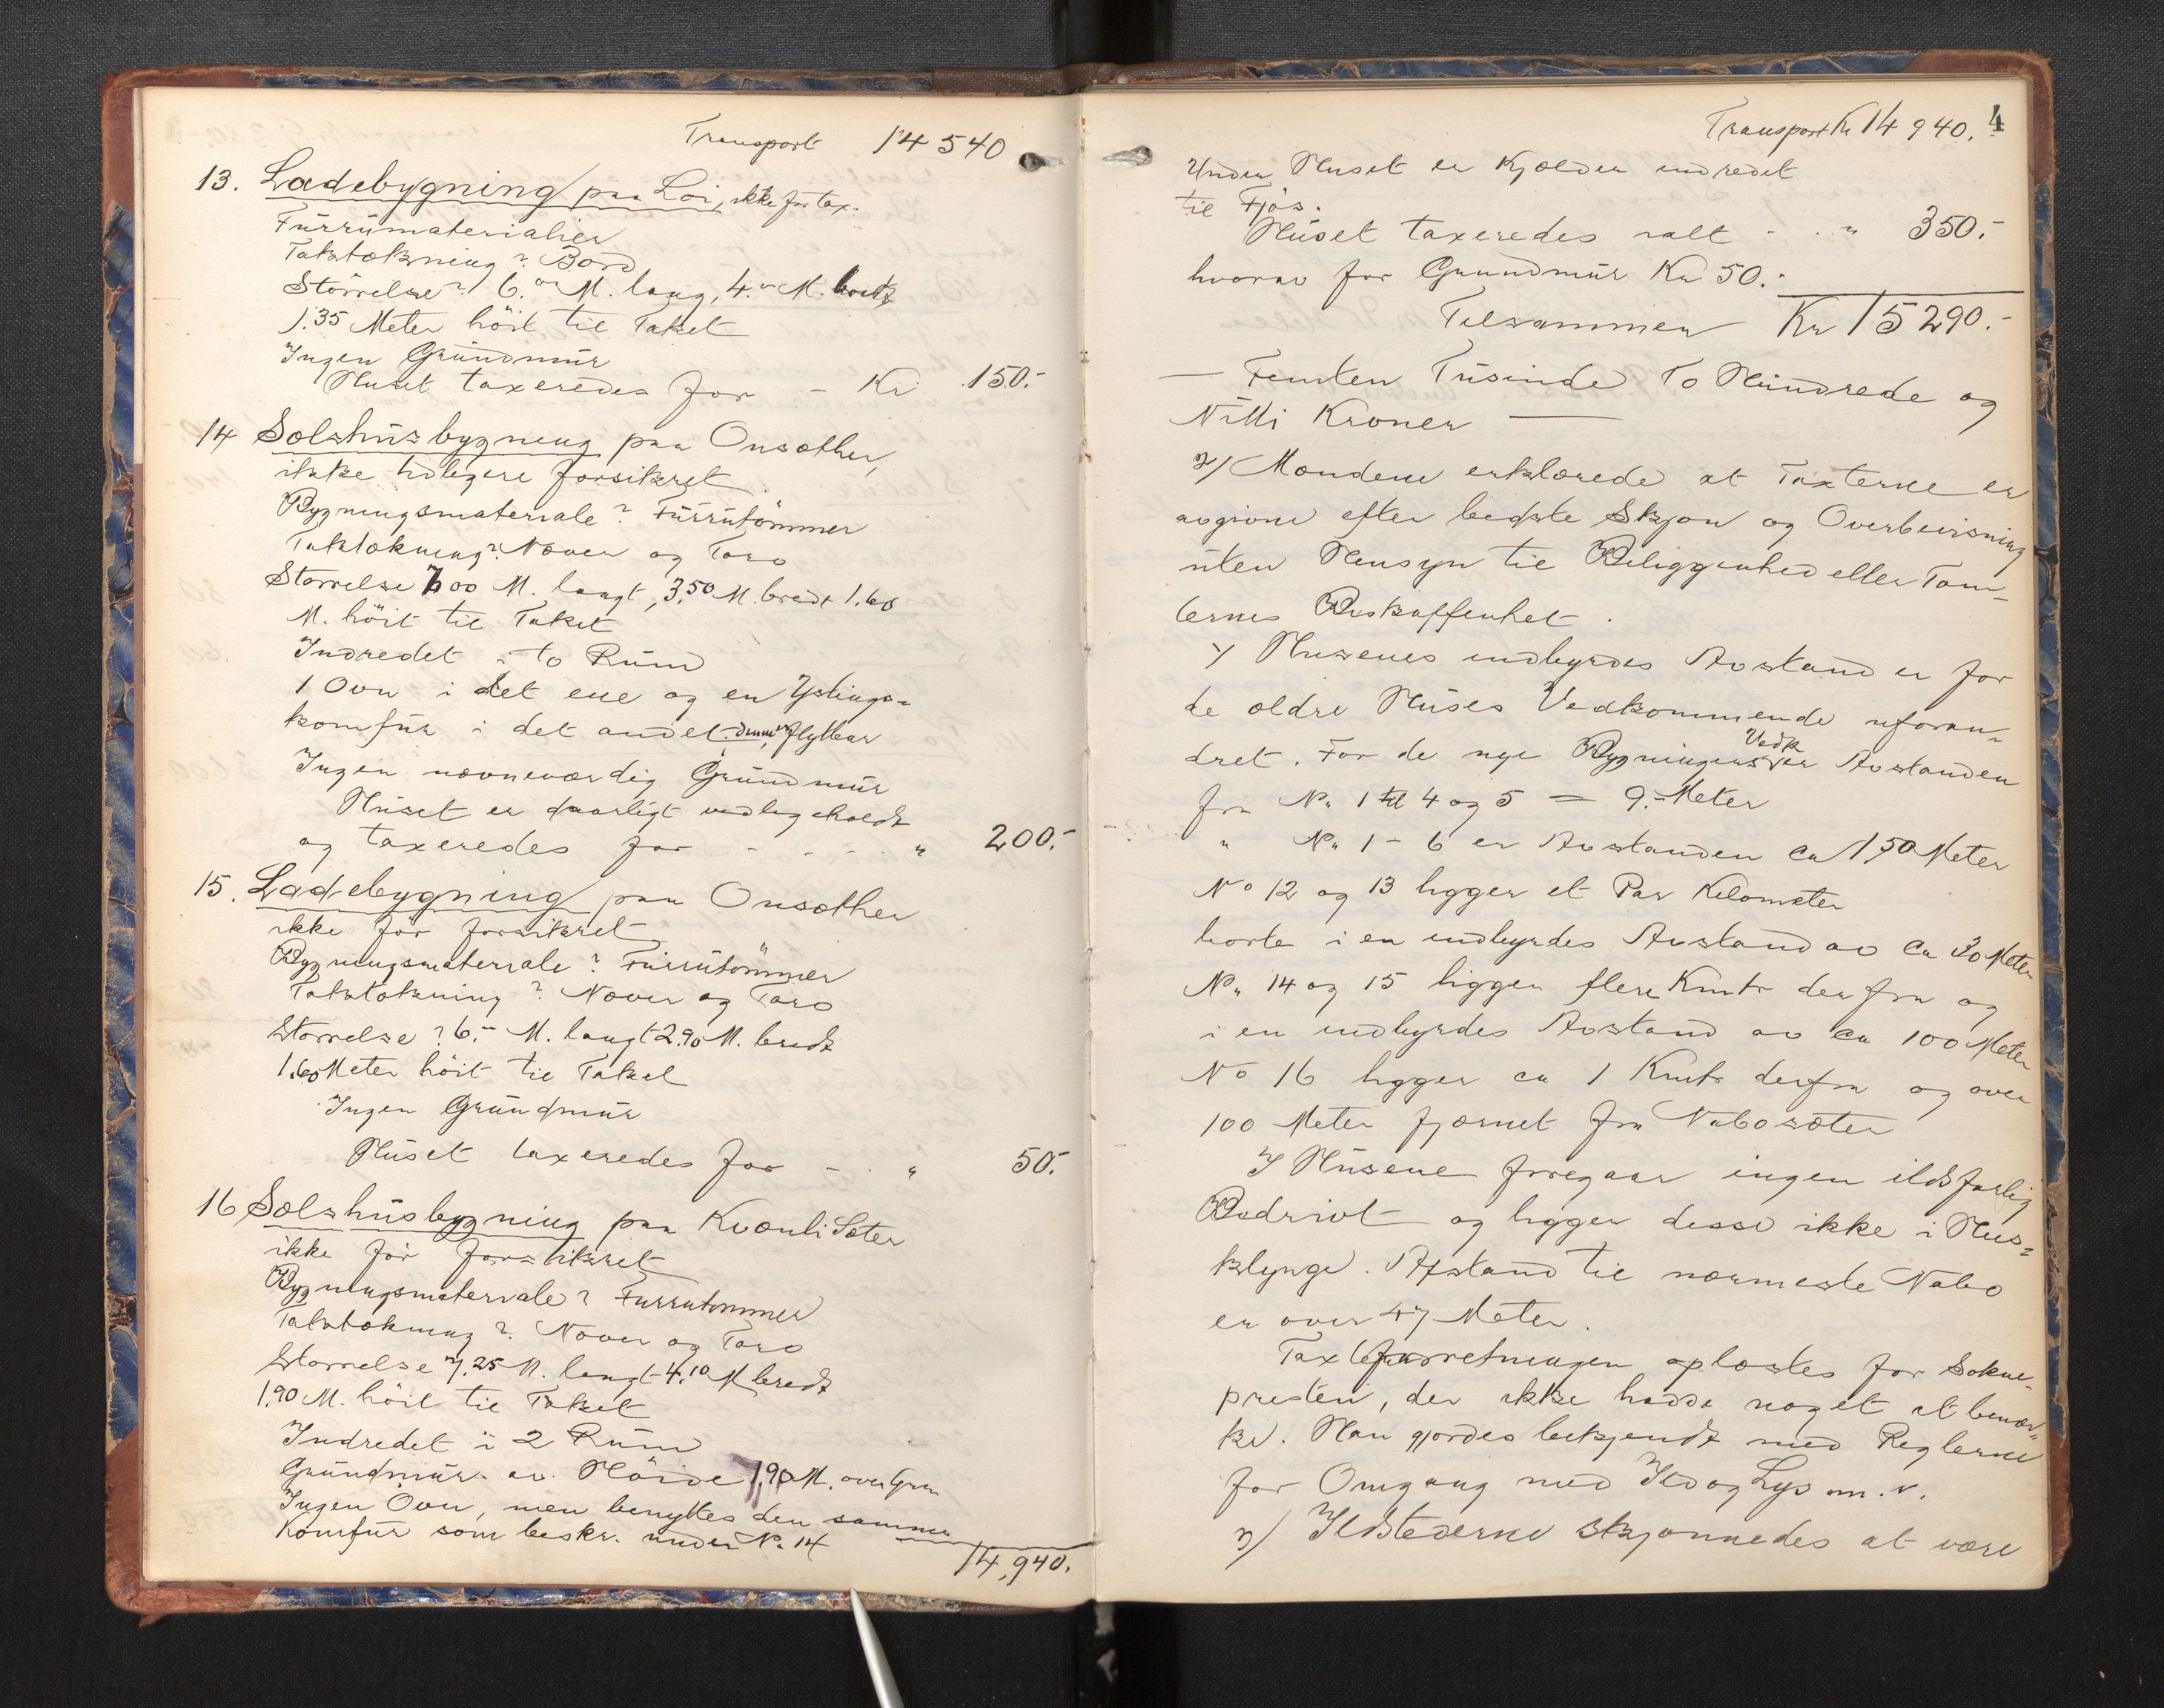 Transport 14540
13. Ladebygning paa Loi, ikke før tax.
Furrumaterialier
Taktækning? Bord
Störrelse? 6.00 M. lang, 4.00 M. bredt
1.35 Meter höit til Taket
Ingen Grundmur
Huset taxeredes for - Kr 150.-
14 Sælshusbygning paa Onsæther,
ikke tidligere forsikret
Bygningsmateriale? Furrutömmer
Taktækning? Næver og Torv
Störrelse 7.00 M. langt, 3.50 M. bredt 1.60
M. höit til Taket
Indredet i to Rum
1 Ovn i det ene og en Ystings-
komfur i det andet. denne er flytbar
Ingen nævneværdig Grundmur
Huset er daarligt vedligeholdt
og taxeredes for - - - - " 200.-
15. Ladebygning paa Onsæther
ikke för forsikret
Bygningsmateriale? Furrutömmer
Taktækning? Næver og Torv
Störrelse? 6.- M. langt 2.90 M. bredt
1.60 Meter höit til Taket
Ingen Grundmur
Huset taxeredes for - . " 50.-
16 Sælshusbygning paa Kvænli Sæter
ikke för forsikret
Bygningsmateriale? Furrutömmer
Taktækning? Næver og Torv
Störrelse 7.25 M. langt 4.10 M bredt
1.90 M. höit til Taket
Indredet i 2 Rum
Grundmur av Höide 1,90 M. over Grun
Ingen Ovn, men benyttes den samme
Komfur som beskr. under No 14
14,940.
4
Transport Kr 14940.
Under Huset er Kjælder indredet
til Fjös.
Huset taxeredes ialt - . . " 350.-
hvorav for Grundmur Kr 50.-
Tilsammen Kr 15290.-
— Femten Tusinde To Hundrede og
Nitti Kroner —
2/ Mændene erklærede at Taxterne er
avgivne efter bedste Skjön og Overbevisning
uten Hensyn til Beliggenhed eller Tom-
ternes Beskaffenhet.
Husenes indbyrdes Avstand er for
de ældre Huses Vedkommende uforan-
dret. For de nye Bygningers Vedk er Avstanden
fra No 1 til 4 og 5 = 9.- Meter
" No 1 - 6 er Avstanden ca 150 Meter
No 12 og 13 ligger et Par Kilometer
borte i en indbyrdes Avstand av ca 20 Meter
No 14 og 15 ligger flere Kmtr derfra og
i en indbyrdes Avstand av ca 100 Meter
No 16 ligger ca 1 Kmtr derfra og over
100 Meter fjærnet fra Nabosæter
I Husene foregaar ingen ildsfarlig
Bedrivt og ligger disse ikke i Hus-
klynge. Afstand til nærmeste Nabo
er over 47 Meter.
Taxtforretningen oplæstes for Sokne-
presten, der ikke hadde noget at bemær-
ke. Han gjordes bekjendt med Reglerne
for Omgang med Ild og Lys m.v.
3/ Ildstederne skjønnedes at være